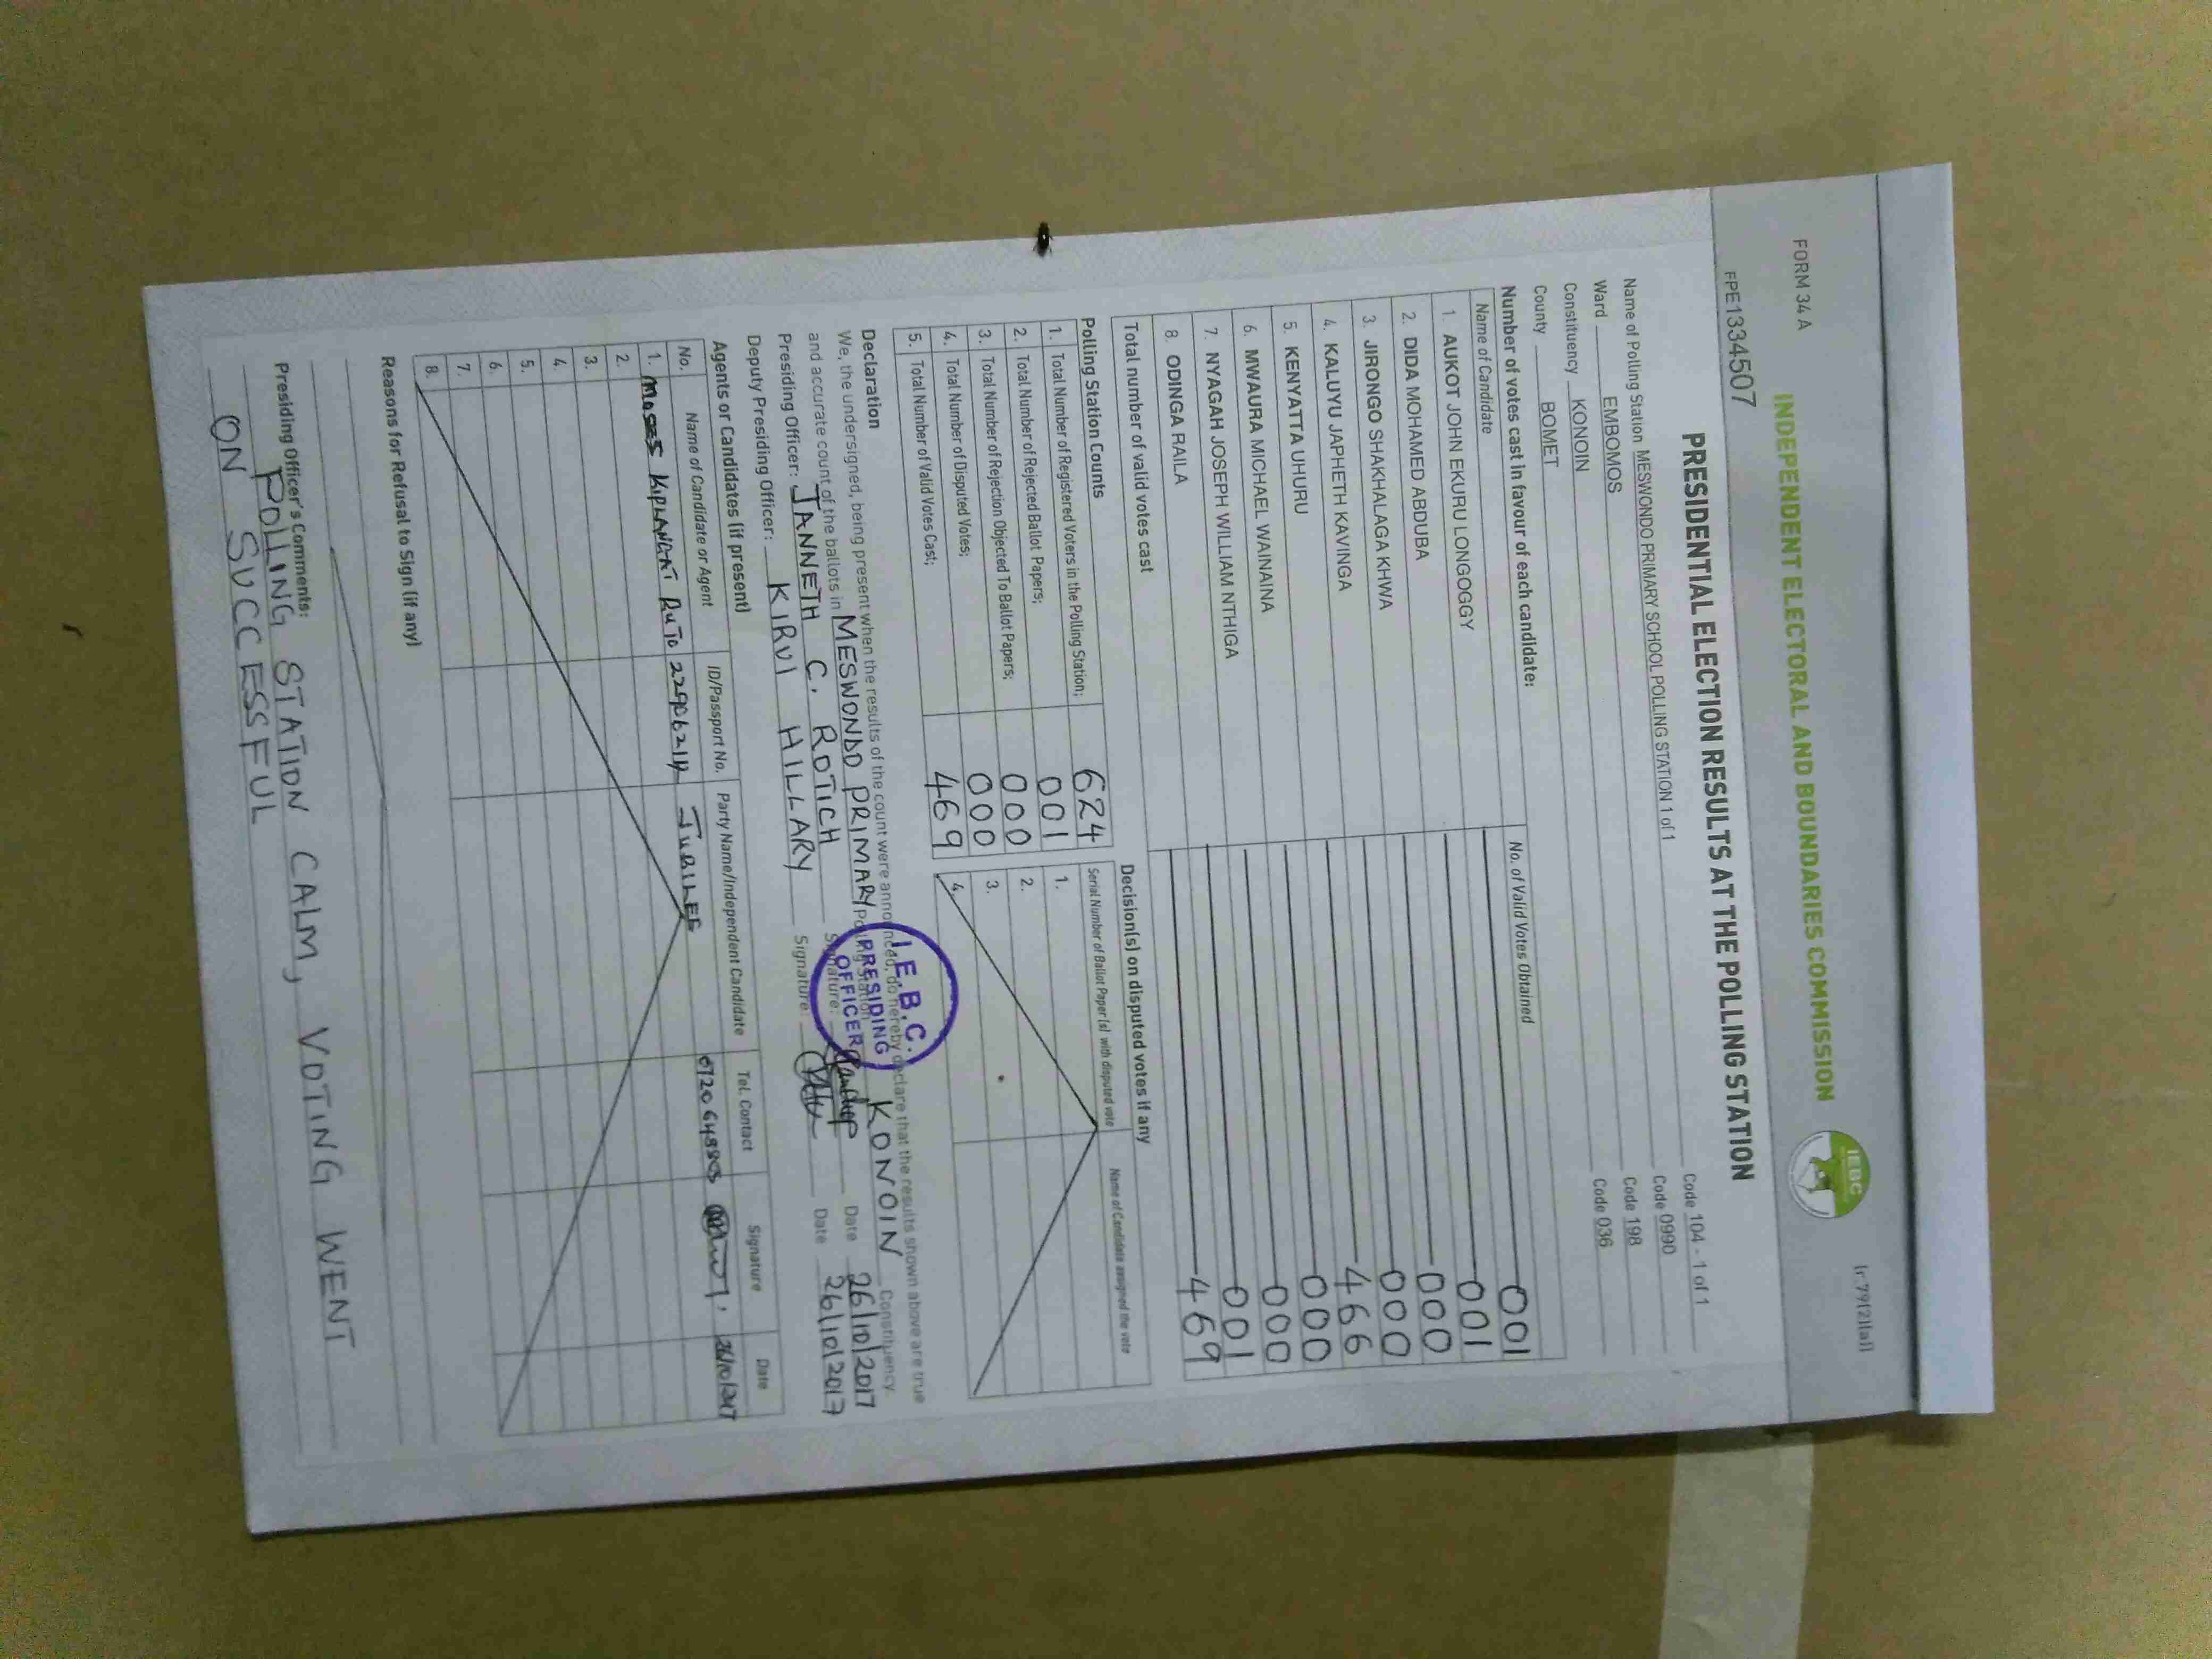 FORM 34 A
INDEPENDENT ELECTORAL AND BOUNDARIES COMMISSION
IEBC
(r.79(2)(a))
FPE1334507
PRESIDENTIAL ELECTION RESULTS AT THE POLLING STATION
Name of Polling Station MESWONDO PRIMARY SCHOOL POLLING STATION 1 of 1 Code 104 - 1 of 1
Ward EMBOMOS Code 0990
Constituency KONOIN Code 198
County BOMET Code 036
Number of votes cast in favour of each candidate:
Name of Candidate No. of Valid Votes Obtained
1 AUKOT JOHN EKURU LONGOGGY 001
2. DIDA MOHAMED ABDUBA 001
3. JIRONGO SHAKHALAGA KHWA 000
4. KALUYU JAPHETH KAVINGA 000
5. KENYATTA UHURU 466
6. MWAURA MICHAEL WAINAINA 000
7. NYAGAH JOSEPH WILLIAM NTHIGA 000
8. ODINGA RAILA 001
Total number of valid votes cast 469
Polling Station Counts
1. Total Number of Registered Voters in the Polling Station; 624
2. Total Number of Rejected Ballot Papers; 001
3. Total Number of Rejection Objected To Ballot Papers; 000
4. Total Number of Disputed Votes; 000
5. Total Number of Valid Votes Cast; 469
Decision(s) on disputed votes if any
Serial Number of Ballot Paper(s) with disputed vote Name of Candidate assigned the vote
1.
2.
3.
4.
Declaration
We, the undersigned, being present when the results of the count were announced, do hereby declare that the results shown above are true
and accurate count of the ballots in MESWONDO PRIMARY Polling Station KONOIN Constituency.
Presiding Officer: JANNETH C. ROTICH Signature: Date 26/10/2017
Deputy Presiding Officer: KIRUI HILLARY Signature: Date 26/10/2017
I.E.B.C.
PRESIDING
OFFICER
Agents or Candidates (if present)
No. Name of Candidate or Agent ID/Passport No. Party Name/Independent Candidate Tel. Contact Signature Date
1. MOSES KIPLANGAT RUTO JUBILEE 26/10/2017
2.
3.
4.
5.
6.
7.
8.
Reasons for Refusal to Sign (if any)
Presiding Officer's Comments:
POLLING STATION CALM, VOTING WENT
ON SUCCESSFUL